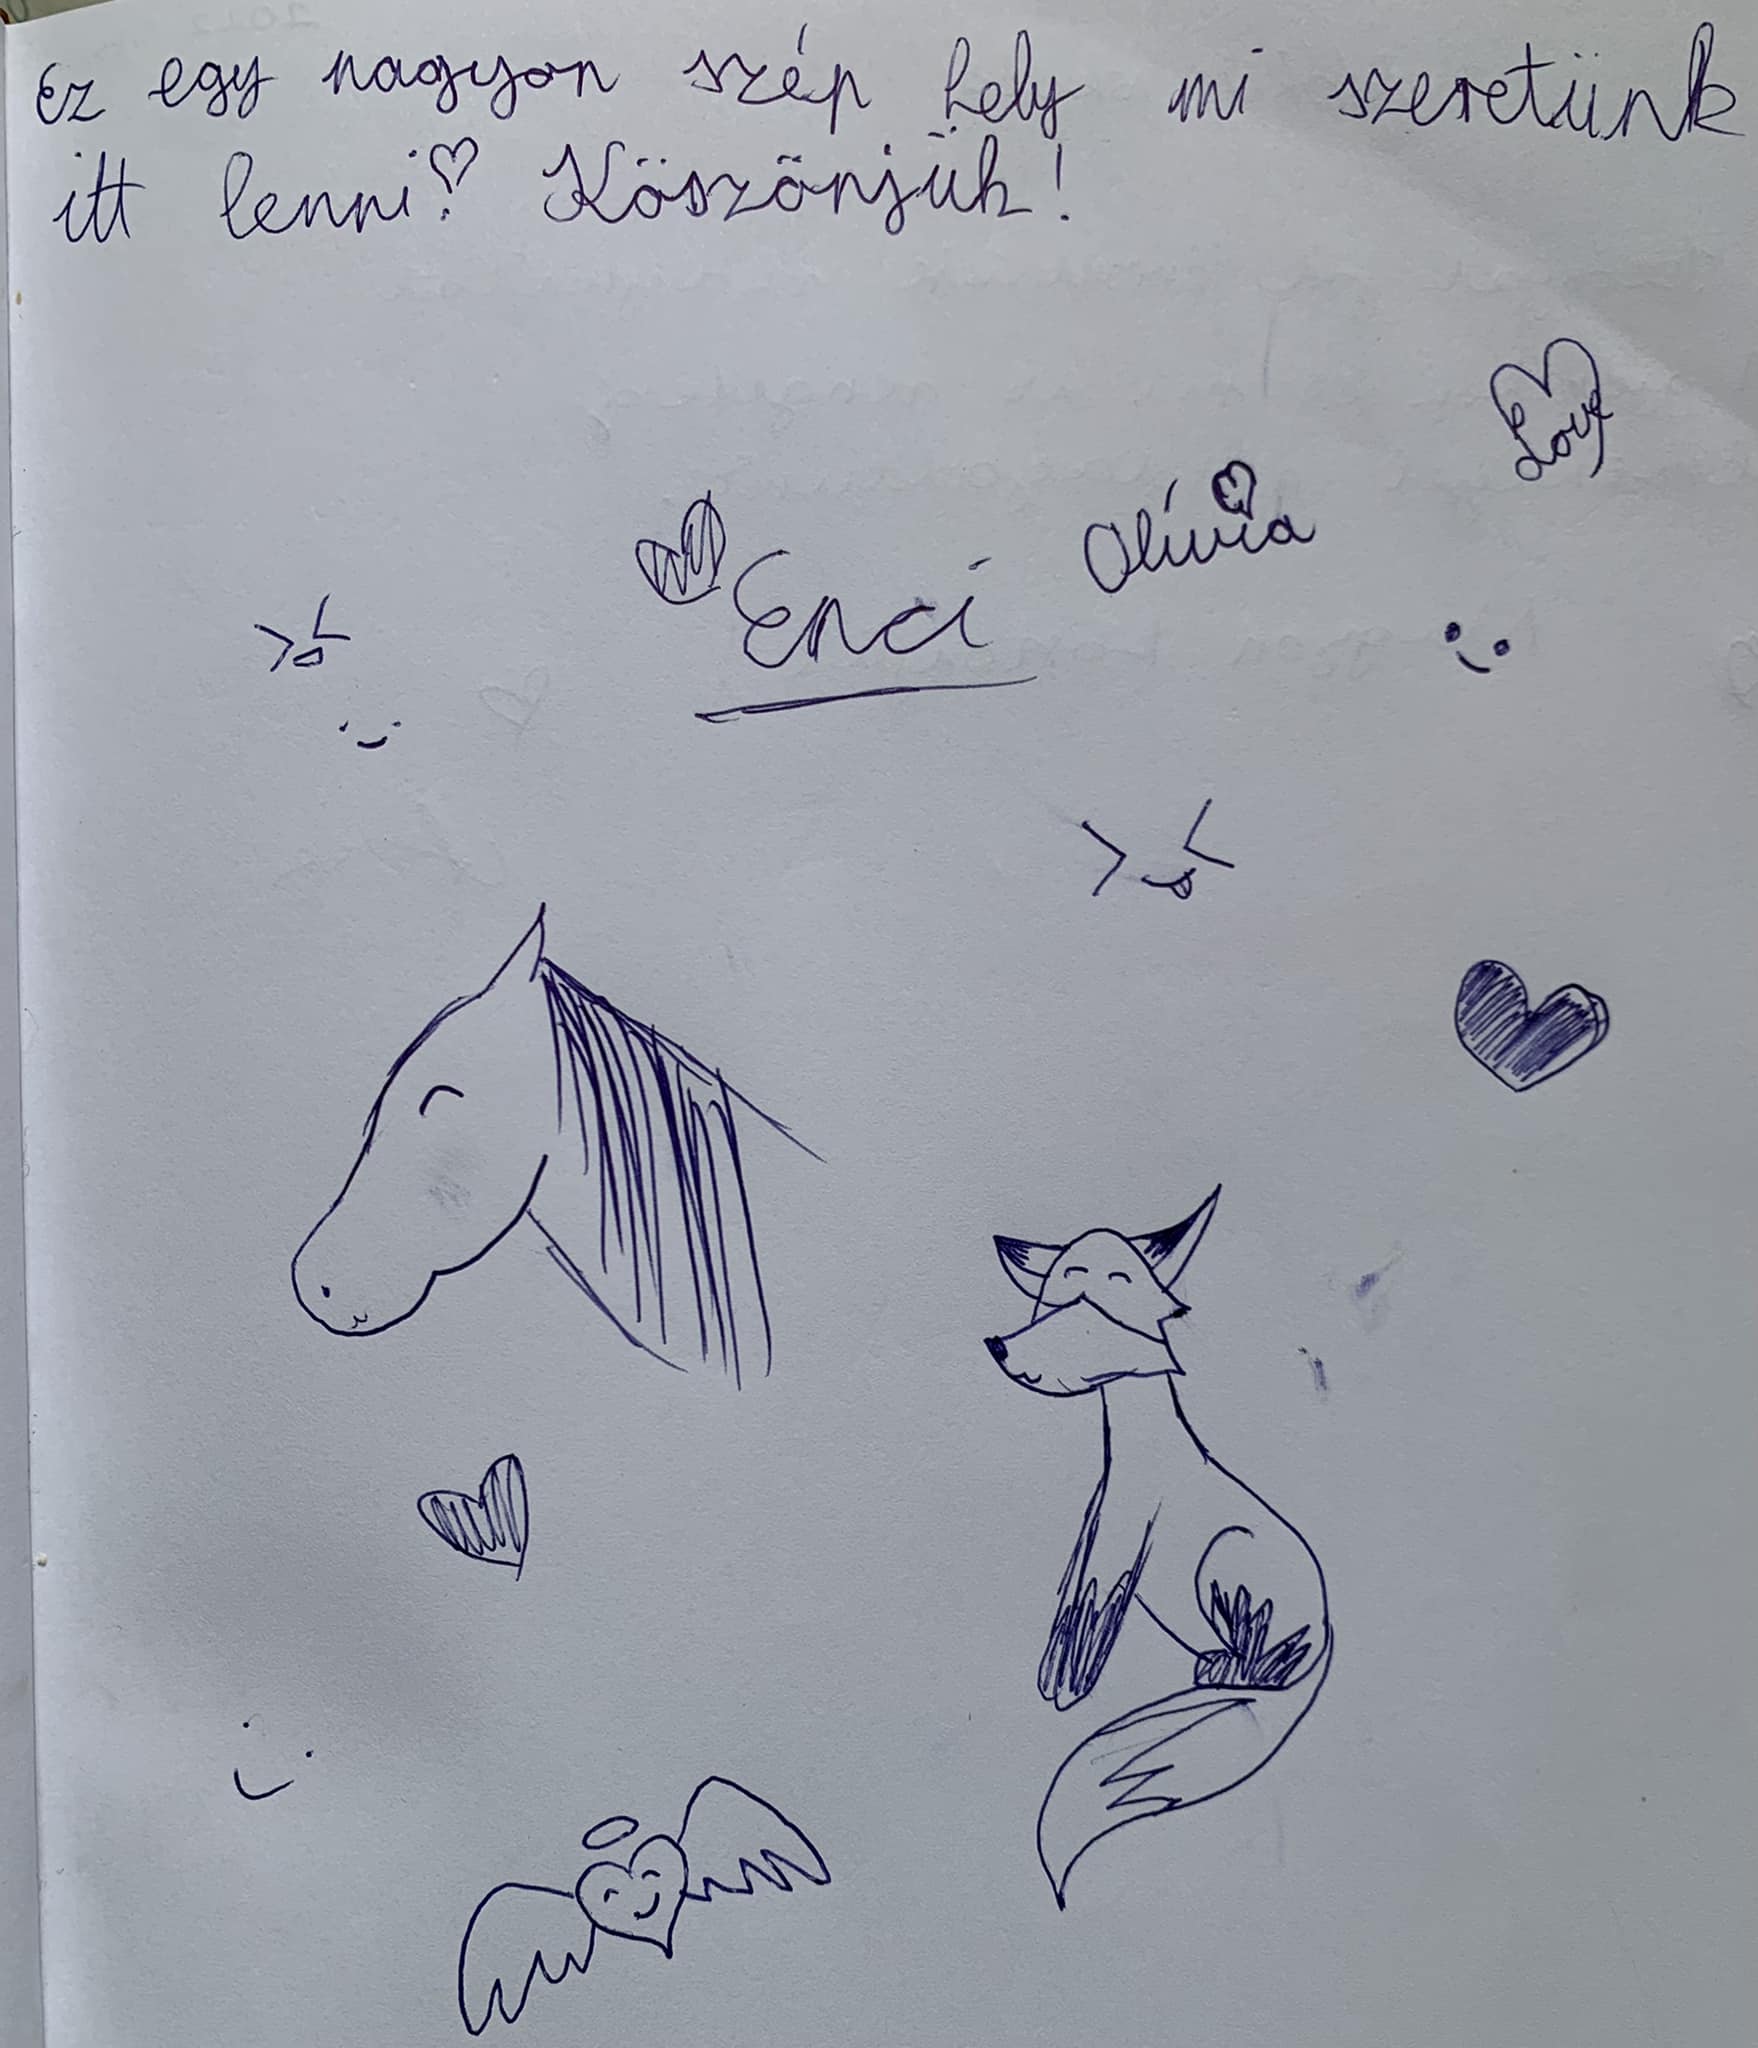 Ez egy nagyon szép hely mi szeretünk
itt lenni! Köszönjük!
Love
Olívia
Enci